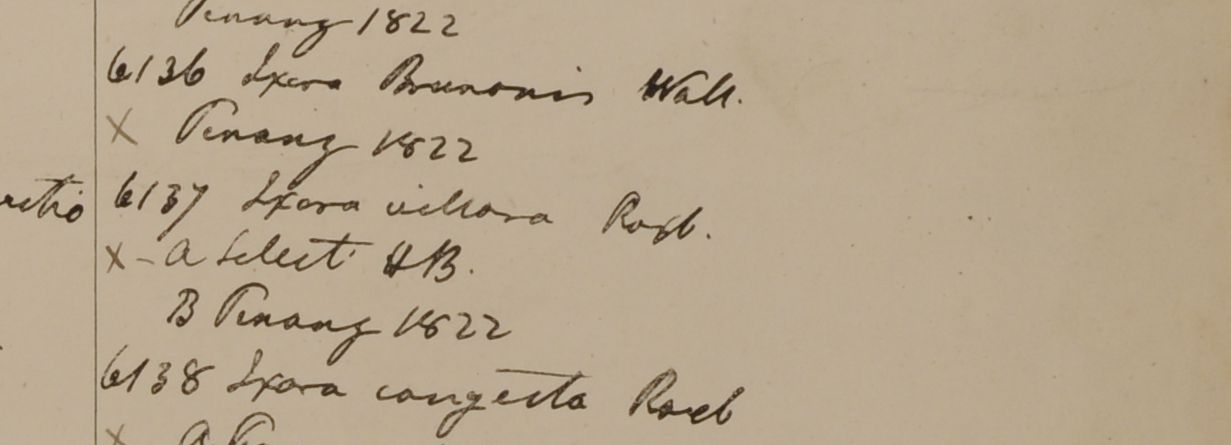 Penang 1822
6136 Ixora Brunonis Wall.
X Penang 1822
6137 Ixora villosa Roxb.
X - a Silhet HB.
B Penang 1822
6138 Ixora congesta Roxb
X a